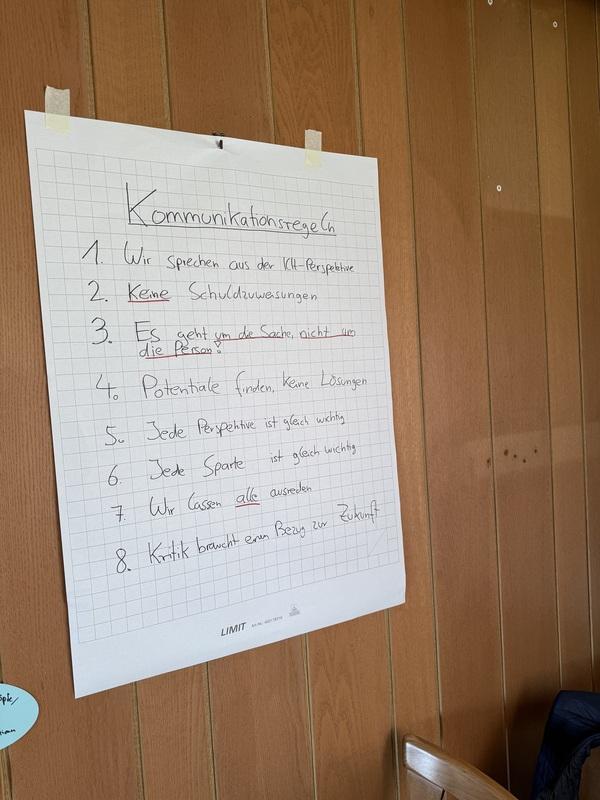 Kommunikationsregeln
1. Wir sprechen aus der KH-Perspektive
2. Keine Schuldzuweisungen
3. Es geht um die Sache, nicht um
die Person!
4. Potentiale finden, keine Lösungen
5. Jede Perspektive ist gleich wichtig
6. Jede Sparte ist gleich wichtig
7. Wir lassen alle ausreden
8. Kritik braucht einen Bezug zur Zukunft
LIMIT